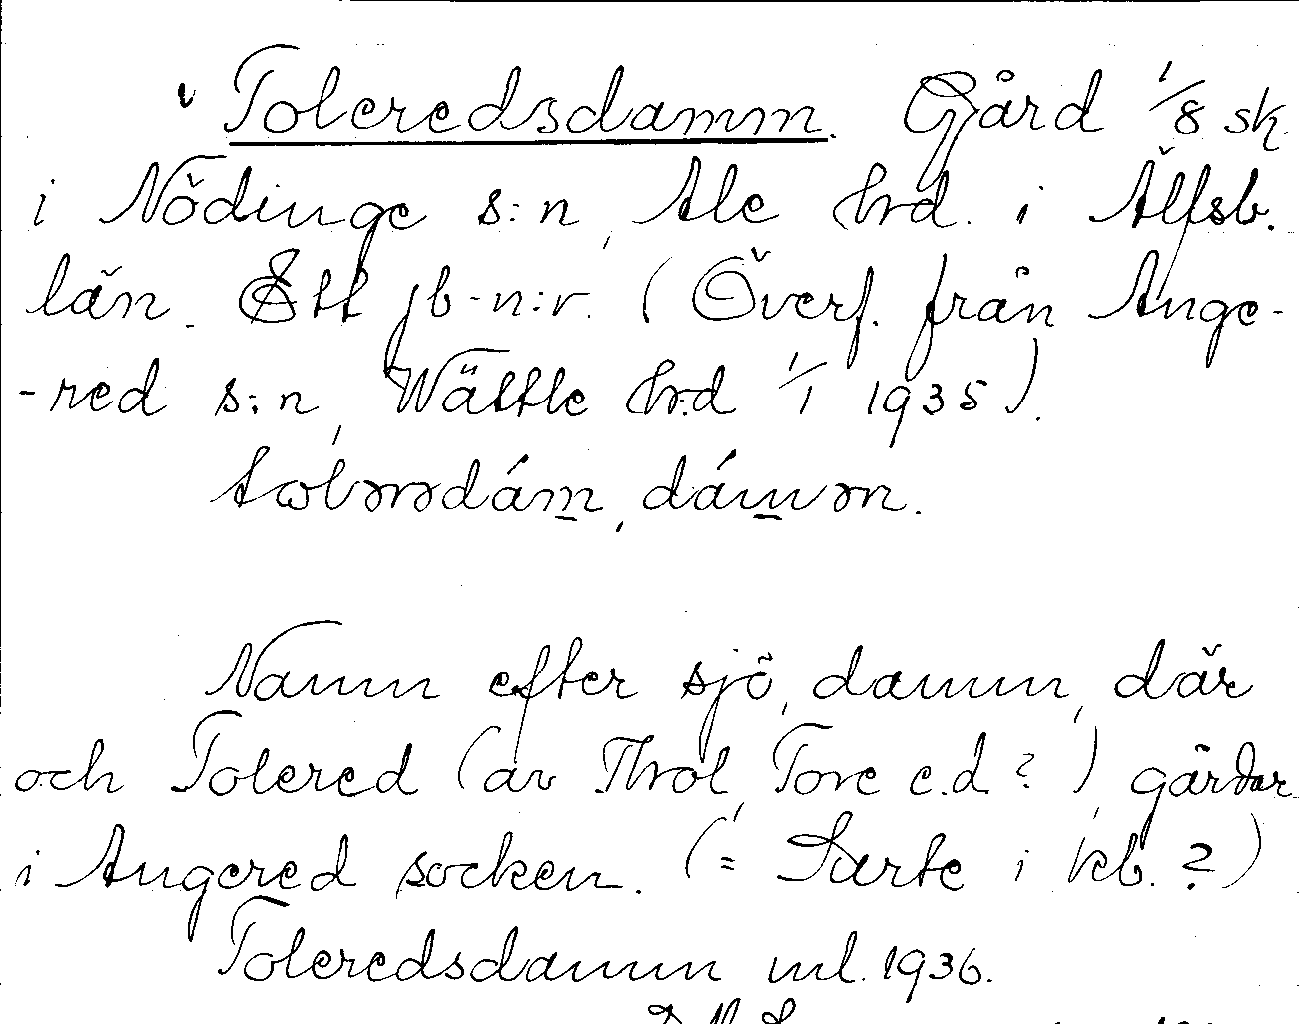 Toleredsdamm. Gård 1/8 sk.
i Nödinge s:n, Ale hrd. i Älfsb.
län. Ett jb-n:r. (Överf. från Ange-
-red s:n, Wättle hrd 1/1 1935).
Namn efter sjö, damm, där
och Tolered (av Throl, Tore e.d?), gårdar
i Angered socken. (= Sarte i kb.?)
Toleredsdamm ml. 1936.